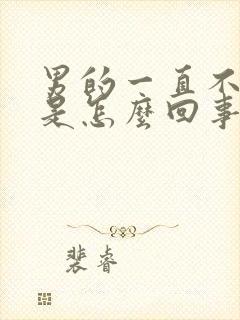 男的一直不
是怎麼回事
裴睿